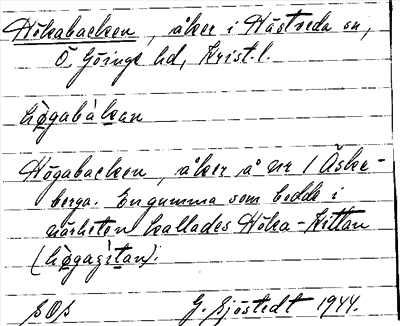 Hökabacken, åker i Hästveda sn,
Ö. Göinge hd, Krist. l.
hø̀gabàkan
Högabacken, åker å nr 1 Äske-
berga. En gumma som bodde i
närheten kallades Höka-Kittan
(hø̀gagìtan).
G. Sjöstedt 1944.